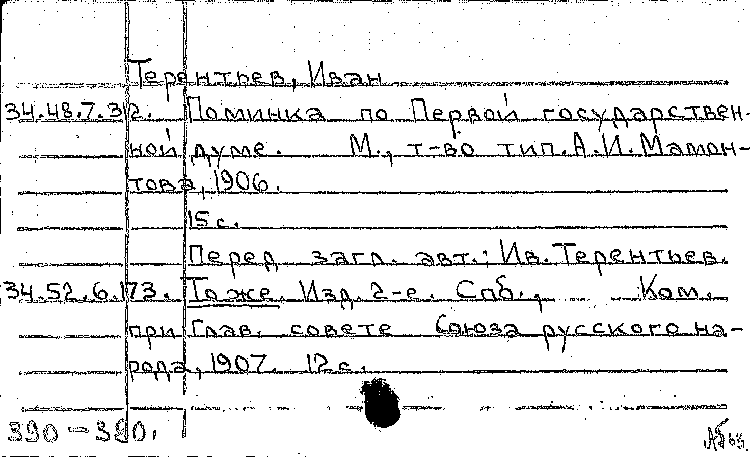 Терентьев, Иван
34.48.7.312. Поминка по Первой государствен-
ной думе. М., т-во тип. А.И. Мамон-
това, 1906.
15 с.
Перед загл. авт.: Ив. Терентьев.
34.52.6.173. То же. Изд. 2-е. Спб., Ком.
при Глав. совете Союза русского на-
рода, 1907. 12 с.
390-390.